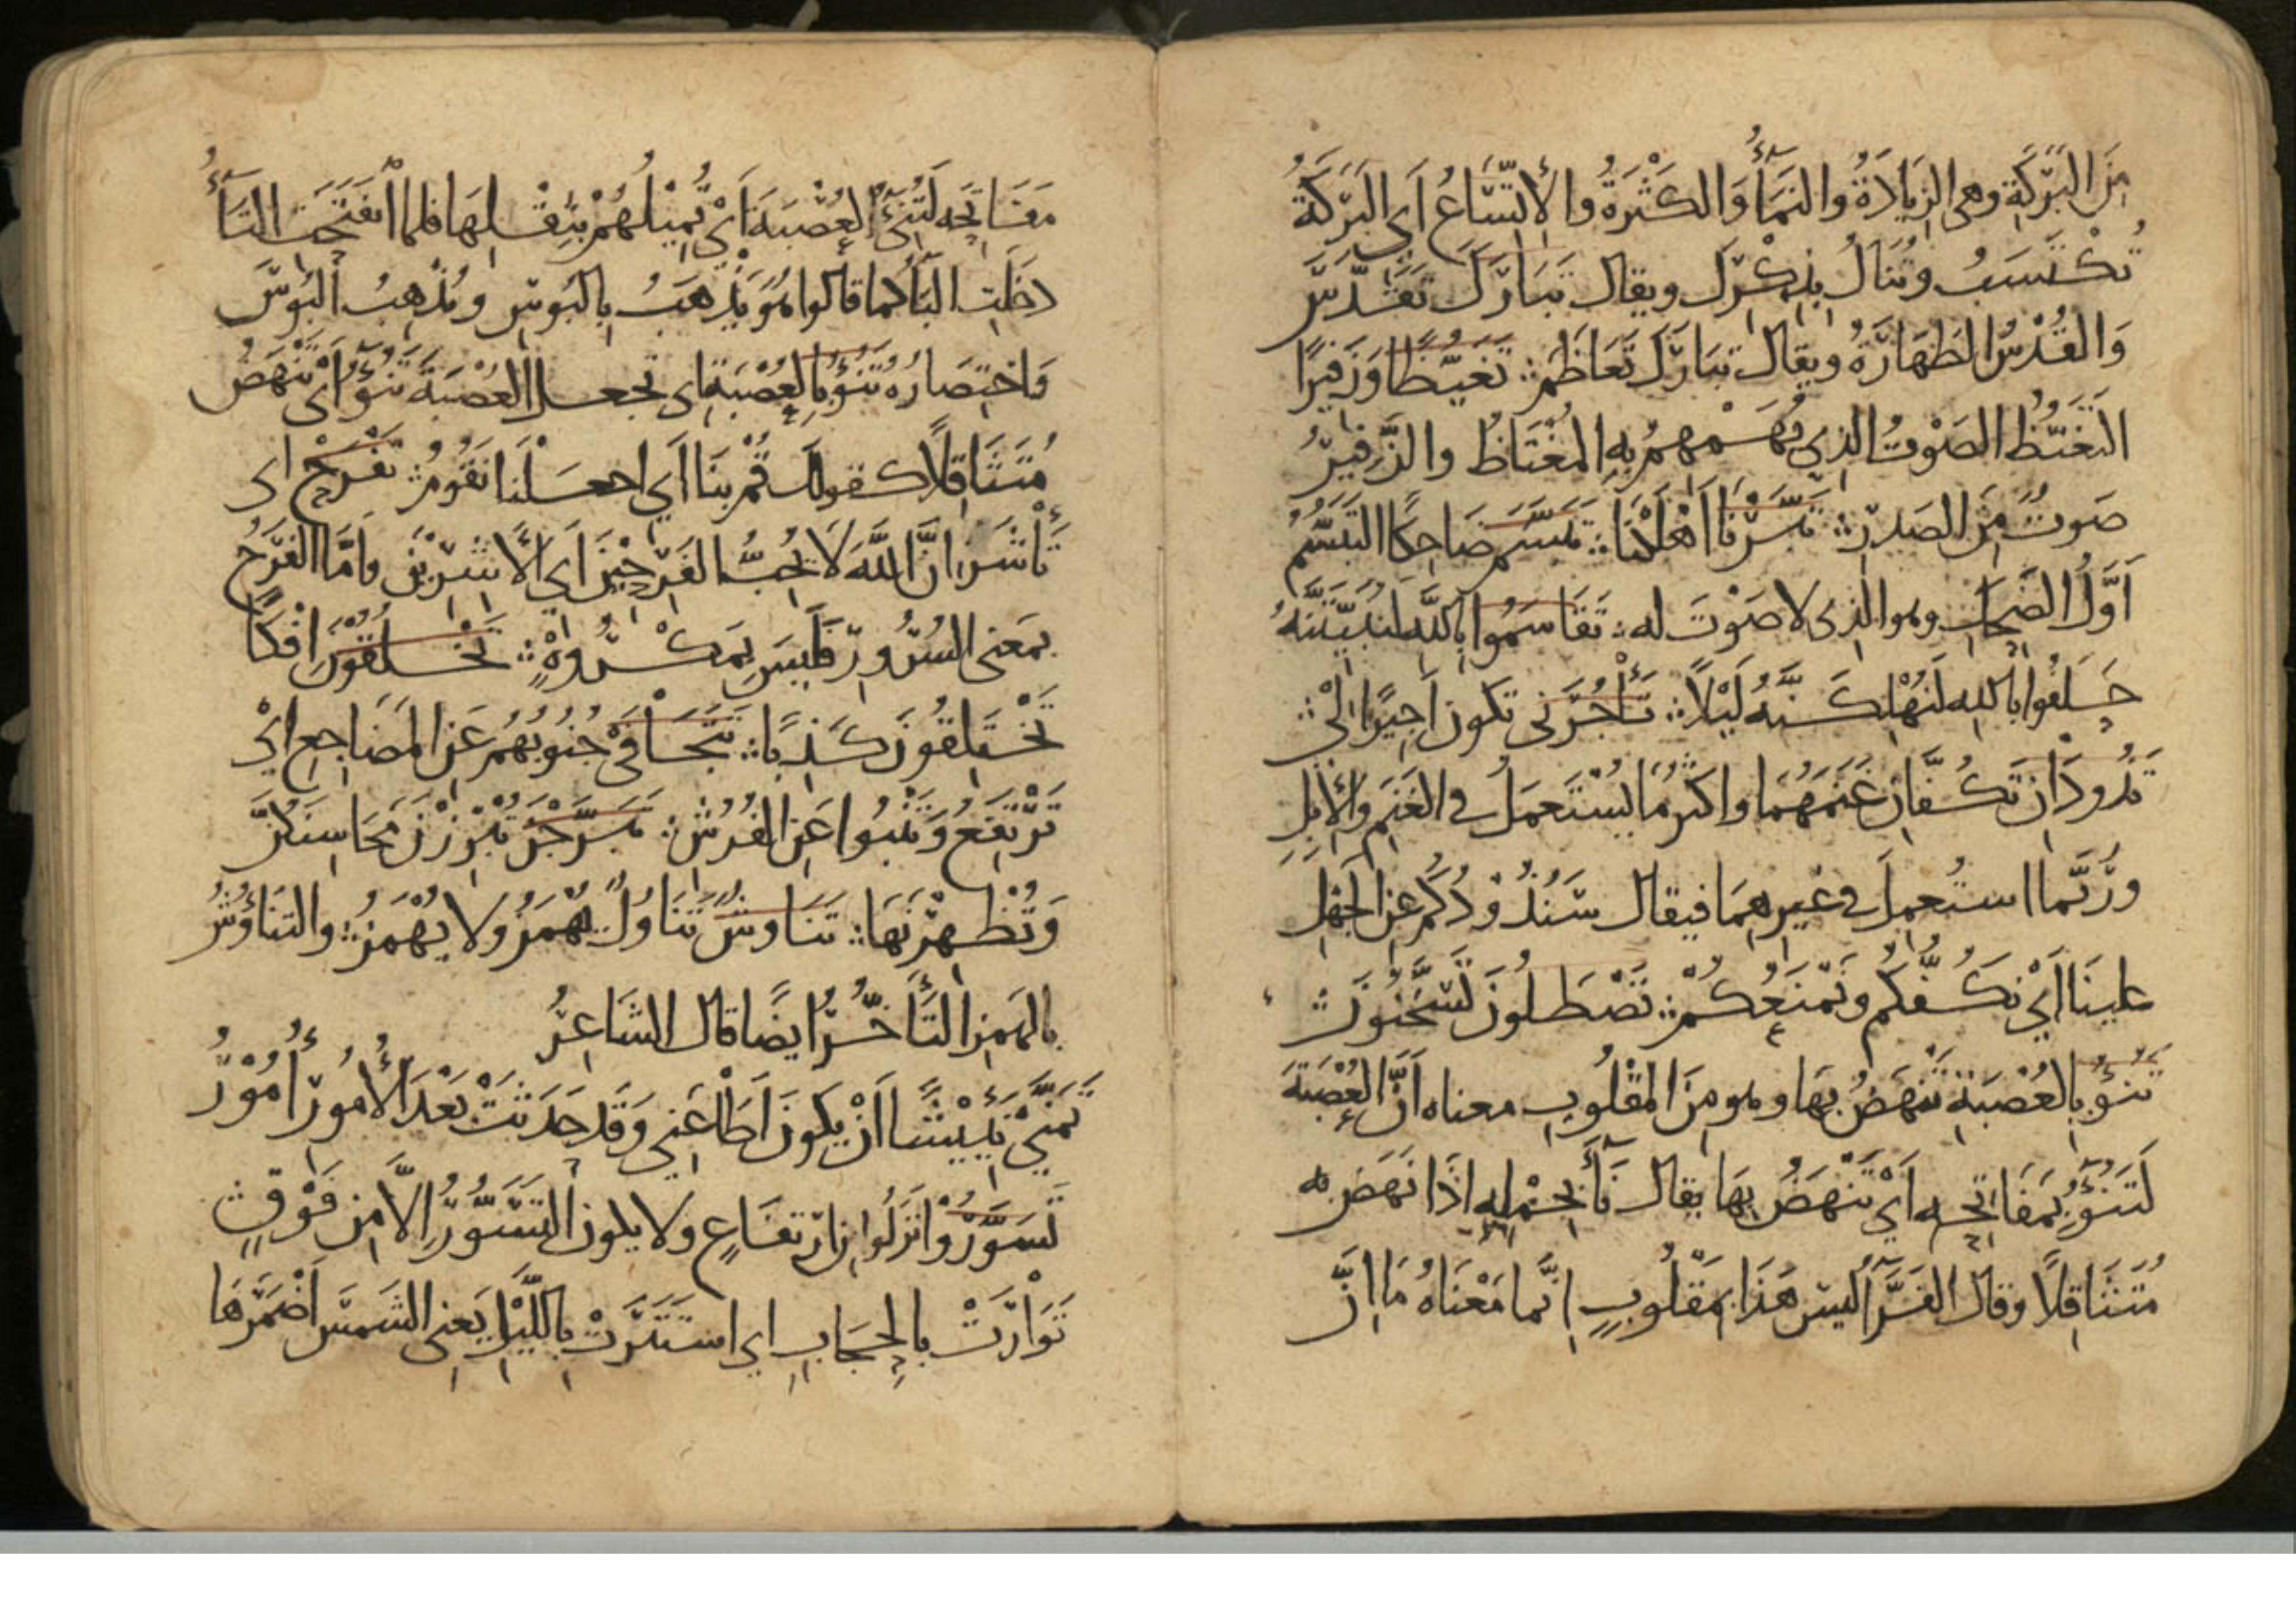 مِنَ البَرَكَةِ وهى الزِيَادَةُ والنَمَآءُ وَالكَثْرَةُ والاِتِّسَاعُ اَىِ البَرَكَةُ
تُكْتَسَبُ وتُنَالُ بِذِكْرِكَ ويقال تَبَارَكَ تَقَدَّسَ
وَالقُدْسُ الطَهَارَةُ ويقال تبَارَكَ تَعَاظَمَ ؞ تَغَيُّظًا وَزَفِيرًا
التَغَيُّظُ الصَوْتُ الذى يُهَمْهِمُ بِهِ المُغْتَاظُ والزَّفِيرُ
صَوتٌ مِنَ الصَدرِ ؞ تَبَّرْنَا اَهْلَكْنَا ؞ تَبَسَّمَ ضَاحِكًا التَبَسُّمُ
اَوَّلُ الضَحِكِ وهو الذى لا صَوْتَ له ؞ تَقَاسَمُوا بِاللهِ لَنُبَيِّتَنَّهُ
حَلَفُوا بالله لَنُهْلِكَنَّهُ لَيْلاً ؞ تَأْجُرَنى تكون اَجِيرًا لِىْ ؞
تَذُودَانِ تَكُفَّانِ غَنَمَهُمَا واكثر مَا يُسْتَعمَلُ فى الغَنَمِ والاِبِلِ
ورُبَّما استُعمِلَ فى غيرِهِمَا فيقال سَنَذُوْدُكُم عَنِ الجَهْلِ
علينَا اَىْ نَكُفُّكُم ونَمْنَعُكُمْ ؞ تَصْطَلُونَ تَسَّخَّنُونَ ؞
تَنُوءُ بِالعُصْبَةِ تَنهَضُ بِهَا وهو مِنَ المَقْلُوبِ معناه اَنَّ العُصْبَةَ
لَتَنُوءُ بِمَفَاتِحِه اَىْ تَنْهَضُ بِهَا يقال نَآءَ بِحِمْلِهِ اِذَا نَهَضَ به
مُتَثَاقِلاً وقال الفَرَّآءُ ليس هَذَا بِمَقْلُوبٍ اِنَّما مَعْنَاهُ مَا اِنَّ
مفَاتِحَه لَتُنِىءُ العُصْبَةَ اَىْ تُمِيلُهُمْ بِثِقْلِهَا فلما انفَتَحَتِ التَآءُ
دخَلَتِ البَآءُ كما قالوا هُوَ يَذْهَبُ بِالبُوسِ ويُذْهِبُ البُوسَ
وَاختِصَارُه تَنُوءُ بِالعُصْبَةِ اى تجعلُ العُصْبَةَ تَنُوءُ اَىْ تَنْهَضُ
مُتَثَاقِلاً كقولك قُمْ بِنَا اَىِ اجعَلْنَا نَقُومُ ؞ تَفْرَحْ اى
تَأْشَر اِنَّ اللَّهَ لَا يُحِبُّ الفَرِحِيْنَ اَىِ الاَشِرِيْنَ وَاَمَّا الفَرَحُ
بمَعنى السُرُورِ فَلَيسَ بِمَكْرُوهٍ ؞ تَخْلُقُوْنَ اِفْكًا
تَخْتَلِقُونَ كَذِبًا ؞ تَتَجَافَىْ جُنُوبُهُم عَنِ المَضَاجِعِ اَىْ
تَرْتَفِعُ وَتَنْبُوا عَنِ الفُرُشِ ؞ تَبَرَّجْنَ تُبْرِزْنَ مَحَاسِنَكُنَّ
وَتُظْهِرْنَهَا ؞ تَنَاوُشٌ تَنَاوُلٌ يُهْمَزُ ولا يُهْمَزُ ؞ والتنَاؤُشُ
بالهَمزِ التَأَخُّرُ ايضًا قال الشَاعِرُ
تَمَنَّى نَئِيْشًا اَنْ يكونَ اَطَاعَنِى وَقَد حَدَثَتْ بَعْدَ الأُمُورِ أُمُوْرُ
تَسَوَّرُوْا نَزَلُوا مِنِ ارتفَاعٍ ولا يكون التَسَوُّرُ اِلاَّ مِن فَوْقٍ ؞
تَوَارَتْ بالحِجَابِ اى استَتَرَتْ بِاللَّيْلِ يَعنِى الشَمسَ اَضْمَرَهَا